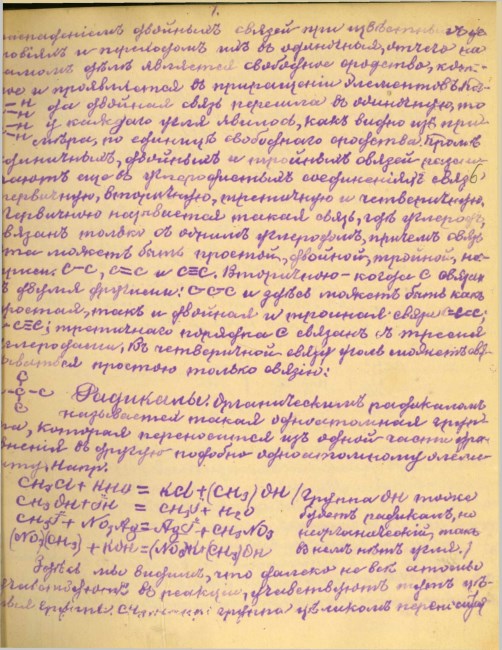 1.
распаденiемъ двойныхъ связей при извѣстныхъ ус
ловiяхъ и переходомъ ихъ въ одиночная, отчего на
самомъ дѣлѣ является свободное сродство, кото
рое и проявляется въ приращенiи элементовъ.
=Н да двойная связь перешла въ одиночную, то
=Н у каждаго угля явилось, какъ видно изъ при
мѣра, по единицѣ свободнаго сродства. Кромѣ
одиничныхъ, двойныхъ и тройныхъ связей разли
чаютъ еще въ углеродистыхъ соединенiяхъ связь
первичную, вторичную, третичную и четверичную.
Первичною называется такая связь, гдѣ углеродъ
связанъ только съ однимъ углеродомъ, причемъ связь
эта можетъ быть простой, двойной, тройной, на-
примѣръ: С-С, С=С и С≡С. Вторичною - когда С связан
съ двумя другими: С-С-С и здѣсь можетъ быть какъ
простая, такъ и двойная и тройная связь
-С≡С; третичнаго порядка С связанъ съ тремя
углеродами. Въ четверичной связи уголь можетъ
простою только связiю:
С
-С-С
С
Радикалы. Органическимъ радикаломъ
называется такая одноатомная груп-
па, которая переносится изъ одной части ура
вненiя въ другую подобно одноатомному элеме
нту. Напр.
CH3Cl + KHO = KCl + (CH3) OH /группа OH тоже
CH3OH + JH = CH3J + H2O будетъ радикалъ, но
CH3J + NO3Ag = AgJ + CH3NO3 неорганическiй, такъ
(NO3)(CH3) + KOH = (NO3)K (CH3)OH въ немъ нѣтъ угля./
Здѣсь мы видимъ, что далеко не всѣ атомы
участвуютъ въ реакцiи, участвуютъ тутъ цѣ-
лыя группы. группа цѣликомъ переносится